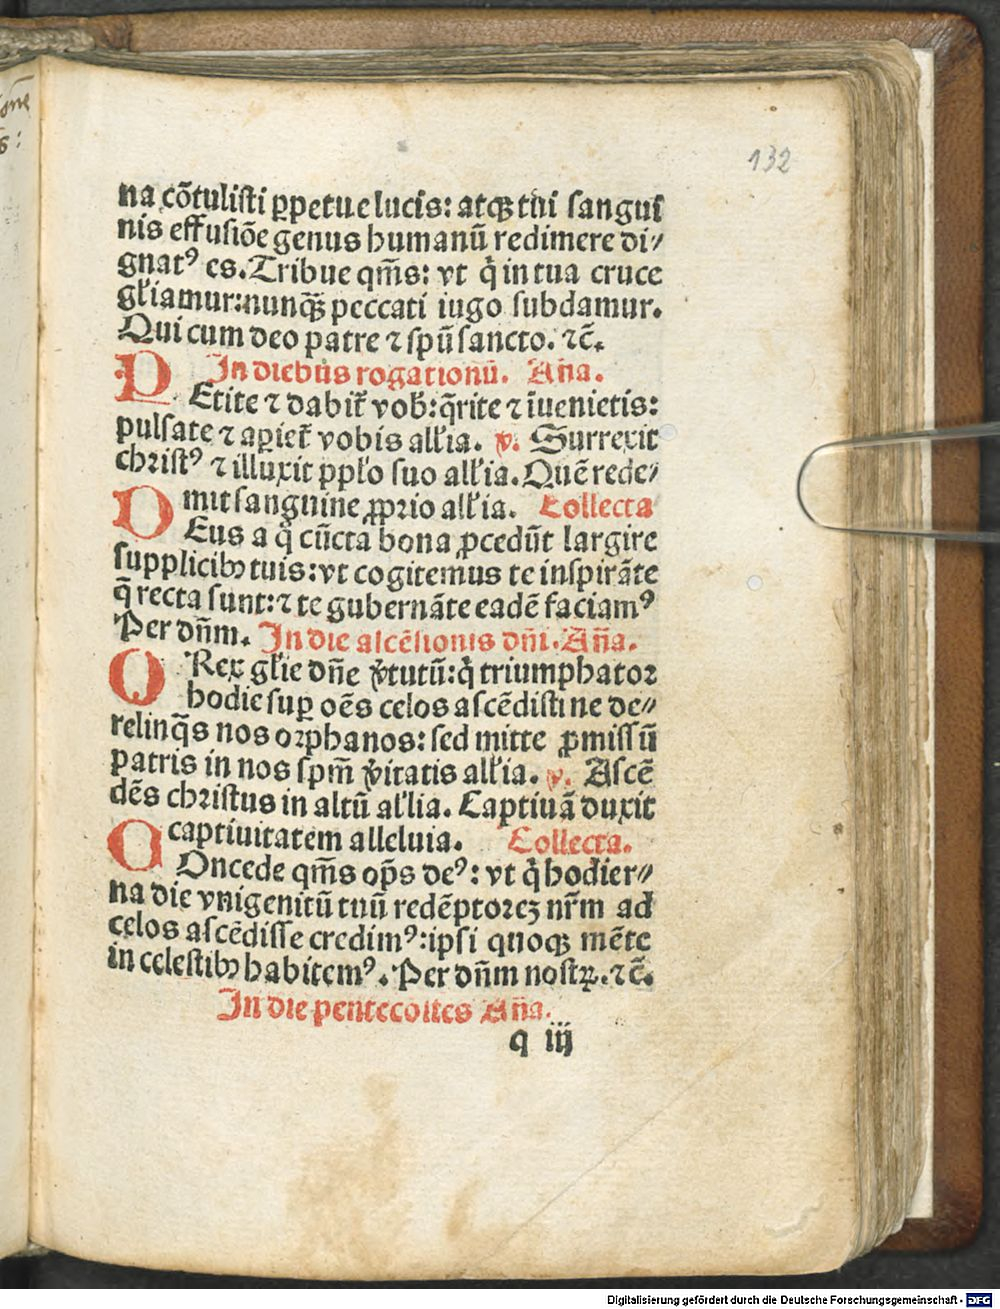 132
na cōtulisti ꝑpetue lucis: atqꝫ tui sangui
nis effusiōe genus humanū redimere di⸗
gnatꝰ es. Tribue qm̄s: vt q̇ in tua cruce
gl'iamur: nunqꝫ peccati iugo subdamur.
Qui cum deo patre ⁊ spū sancto. ⁊c̄.
In diebus rogationū. Aña.
PEtite ⁊ dabit̄ vob̄: q̄rite ⁊ īuenietis:
pulsate ⁊ aꝑiet̄ vobis all'ia. ℣. Surrexit
christꝰ ⁊ illuxit pp̄lo suo all'ia. Quē rede⸗
mit sanguine ꝓprio all'ia. Collecta
DEus a q̇ cūcta bona ꝓcedūt largire
supplicibꝫ tuis: vt cogitemus te inspirāte
q̄ recta sunt: ⁊ te gubernāte eadē faciamꝰ
Per dn̄m. In die ascēsionis dn̄i. Aña.
O Rex gl'ie dn̄e v̇tutū: q̇ triumphator
hodie suꝑ oēs celos ascēdisti ne de⸗
relinq̄s nos orphanos: sed mitte ꝓmissū
patris in nos spm̄ v̇itatis all'ia. ℣. Ascē
dēs christus in altū al'lia. Captiuā duxit
captiuitatem alleluia. Collecta.
COncede qm̄s op̄s deꝰ: vt q̇ hodier⸗
na die vnigenitū tuū redēptoreꝫ nr̄m ad
celos ascēdisse credimꝰ: ipsi quoqꝫ mēte
in celestibꝫ habitemꝰ. Per dn̄m nostꝝ. ⁊c̄.
In die pentecostes Aña.
q iij
Digitalisierung gefördert durch die Deutsche Forschungsgemeinschaft - DFG